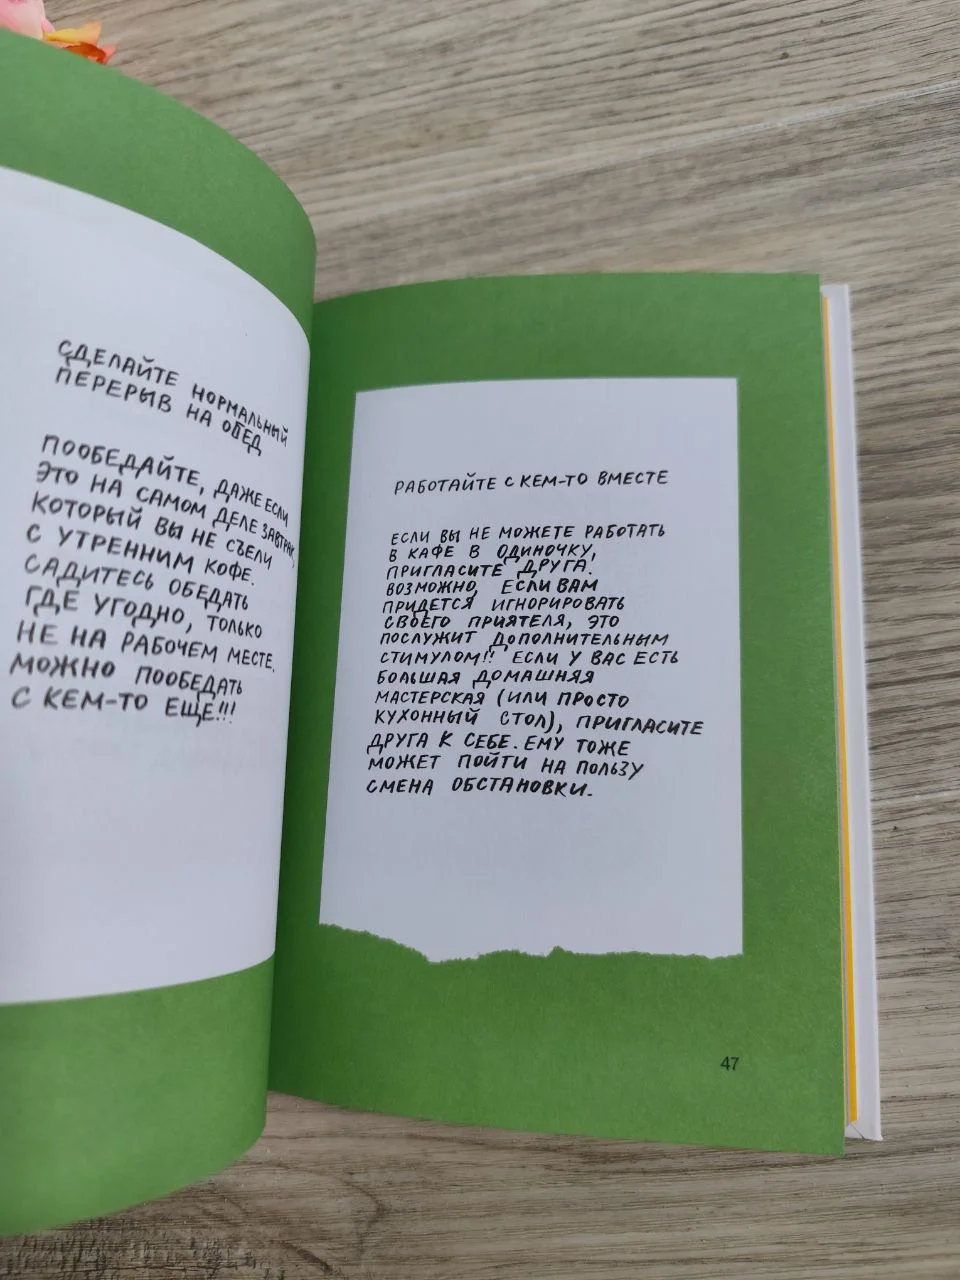 СДЕЛАЙТЕ НОРМАЛЬНЫЙ
ПЕРЕРЫВ НА ОБЕД
ПООБЕДАЙТЕ, ДАЖЕ ЕСЛИ
ЭТО НА САМОМ ДЕЛЕ ЗАВТРАК,
КОТОРЫЙ ВЫ НЕ СЪЕЛИ
С УТРЕННИМ КОФЕ.
САДИТЕСЬ ОБЕДАТЬ
ГДЕ УГОДНО, ТОЛЬКО
НЕ НА РАБОЧЕМ МЕСТЕ.
МОЖНО ПООБЕДАТЬ
С КЕМ-ТО ЕЩЕ!!!
РАБОТАЙТЕ С КЕМ-ТО ВМЕСТЕ
ЕСЛИ ВЫ НЕ МОЖЕТЕ РАБОТАТЬ
В КАФЕ В ОДИНОЧКУ,
ПРИГЛАСИТЕ ДРУГА.
ВОЗМОЖНО, ЕСЛИ ВАМ
ПРИДЕТСЯ ИГНОРИРОВАТЬ
СВОЕГО ПРИЯТЕЛЯ, ЭТО
ПОСЛУЖИТ ДОПОЛНИТЕЛЬНЫМ
СТИМУЛОМ!! ЕСЛИ У ВАС ЕСТЬ
БОЛЬШАЯ ДОМАШНЯЯ
МАСТЕРСКАЯ (ИЛИ ПРОСТО
КУХОННЫЙ СТОЛ), ПРИГЛАСИТЕ
ДРУГА К СЕБЕ. ЕМУ ТОЖЕ
МОЖЕТ ПОЙТИ НА ПОЛЬЗУ
СМЕНА ОБСТАНОВКИ.
47